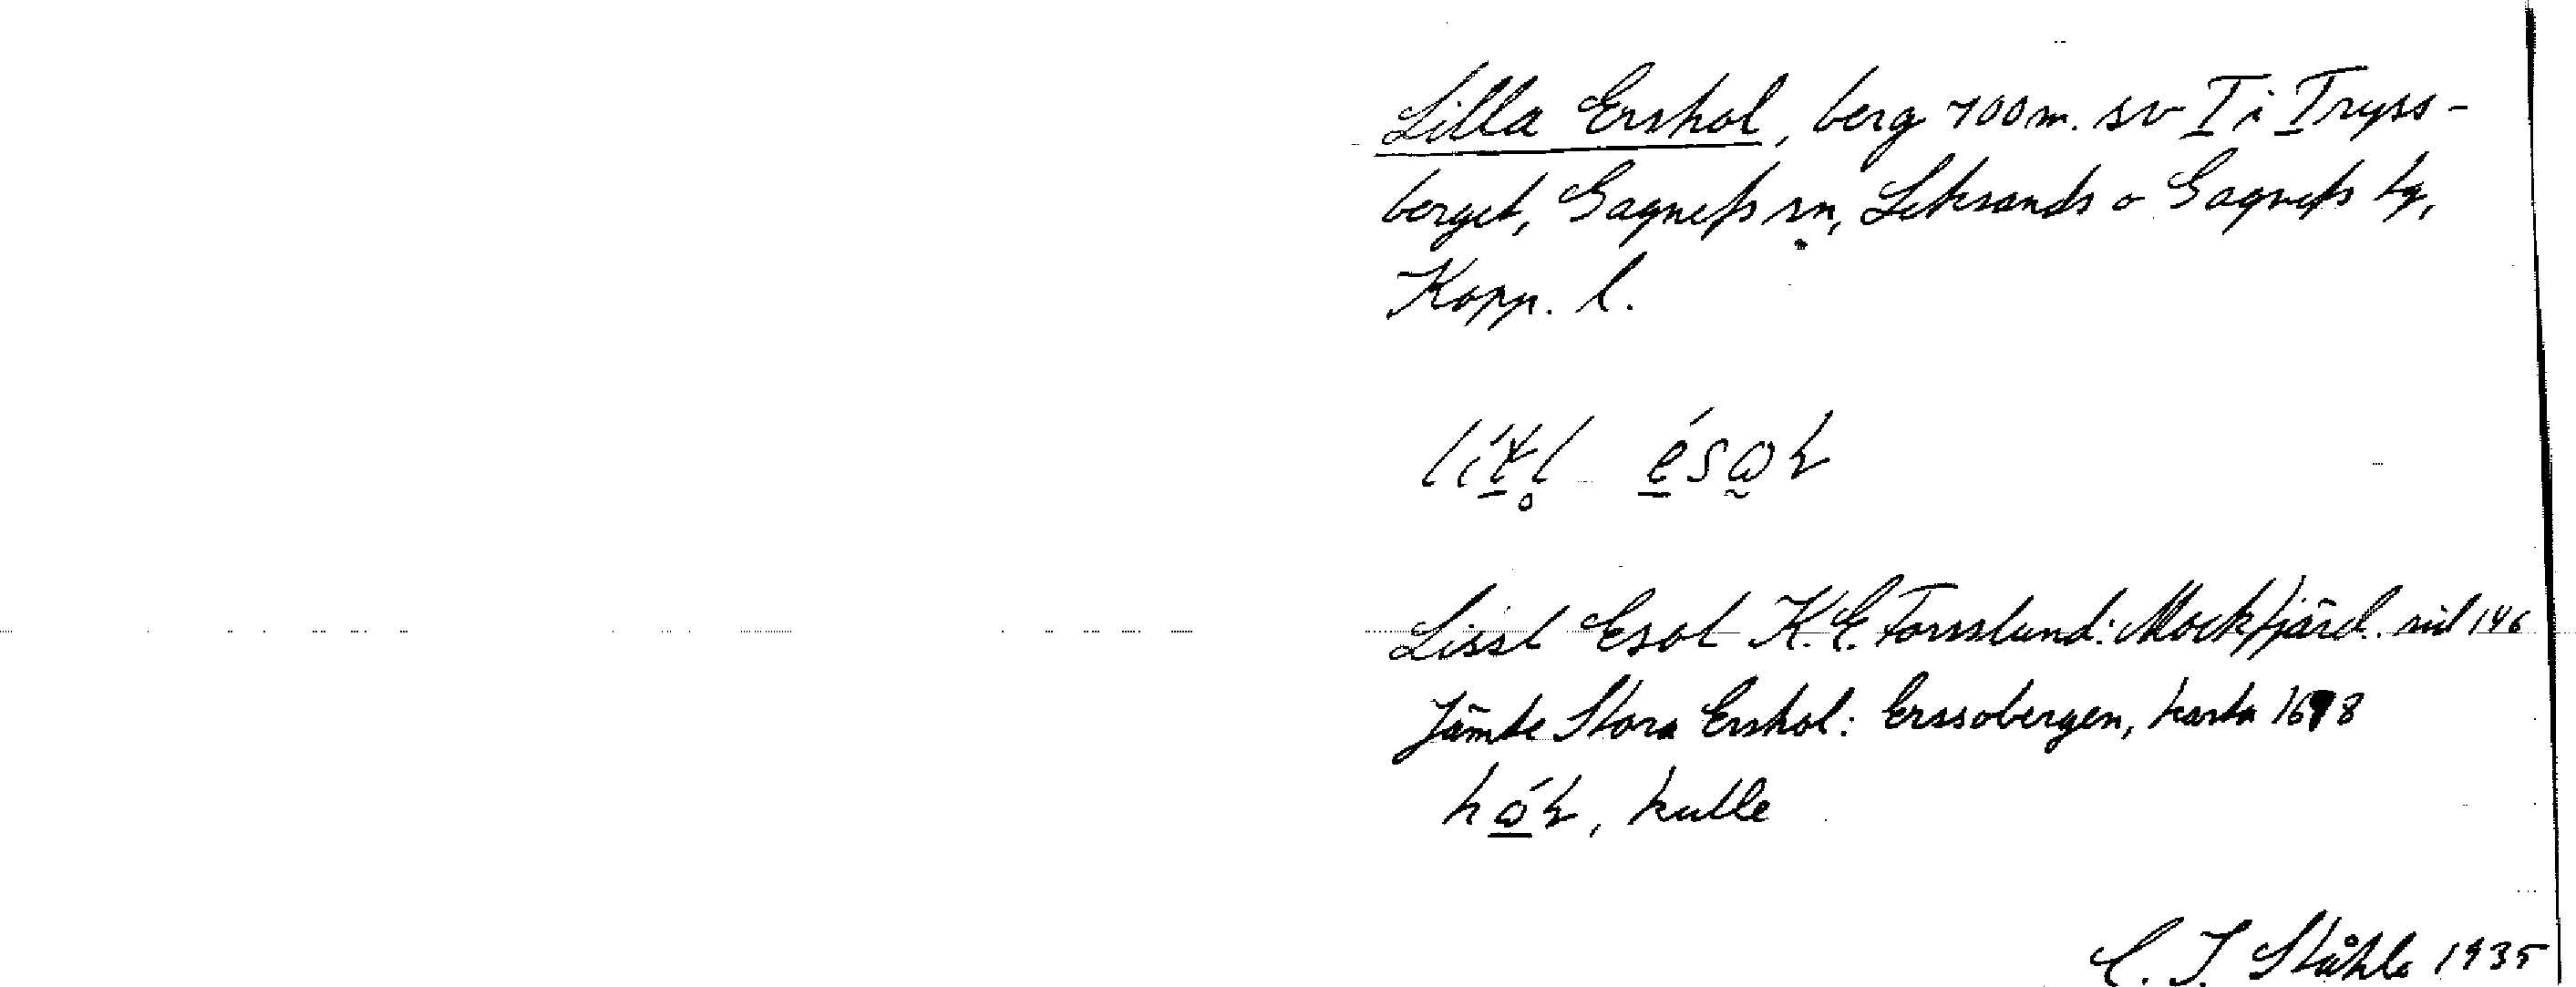 Lilla Ershol, berg 700 m. sv T i Tryss-
berget, Gagnefs sn, Leksands o Gagnefs tg,
Kopp. l.
Lissl Esol K. E. Forsslund: Mockfjärd. sid 146
Jämte Stora Ershol: Erssobergen, karta 1698
kulle
C. I. Ståhle 1935